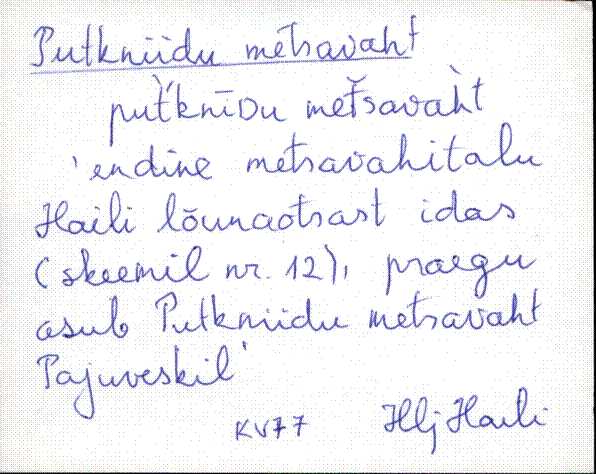 Putkniidu metsavaht
put̆'knīDu metšavàht
'endine metsavahitalu
Haili lõunaotsast idas
(skeemil nr. 12), praegu
asub Putkniidu metsavaht
Pajuveskil'
KV77 HljHaili